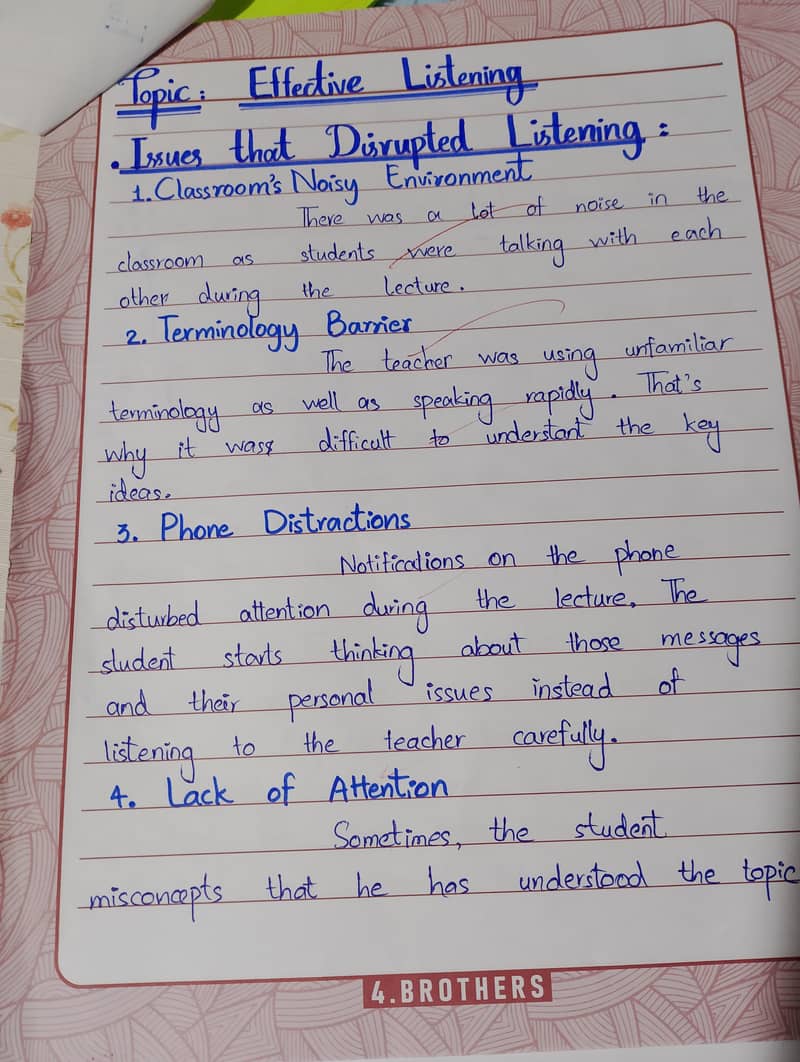 Topic: Effective Listening
. Issues that Disrupted Listening:
1. Classroom's Noisy Environment
There was a lot of noise in the
classroom as students were talking with each
other during the lecture.
2. Terminology Barrier
The teacher was using unfamiliar
terminology as well as speaking rapidly. That's
why it was difficult to understant the key
ideas.
3. Phone Distractions
Notifications on the phone
disturbed attention during the lecture. The
student starts thinking about those messages
and their personal issues instead of
listening to the teacher carefully.
4. Lack of Attention
Sometimes, the student
misconcepts that he has understood the topic
4.BROTHERS